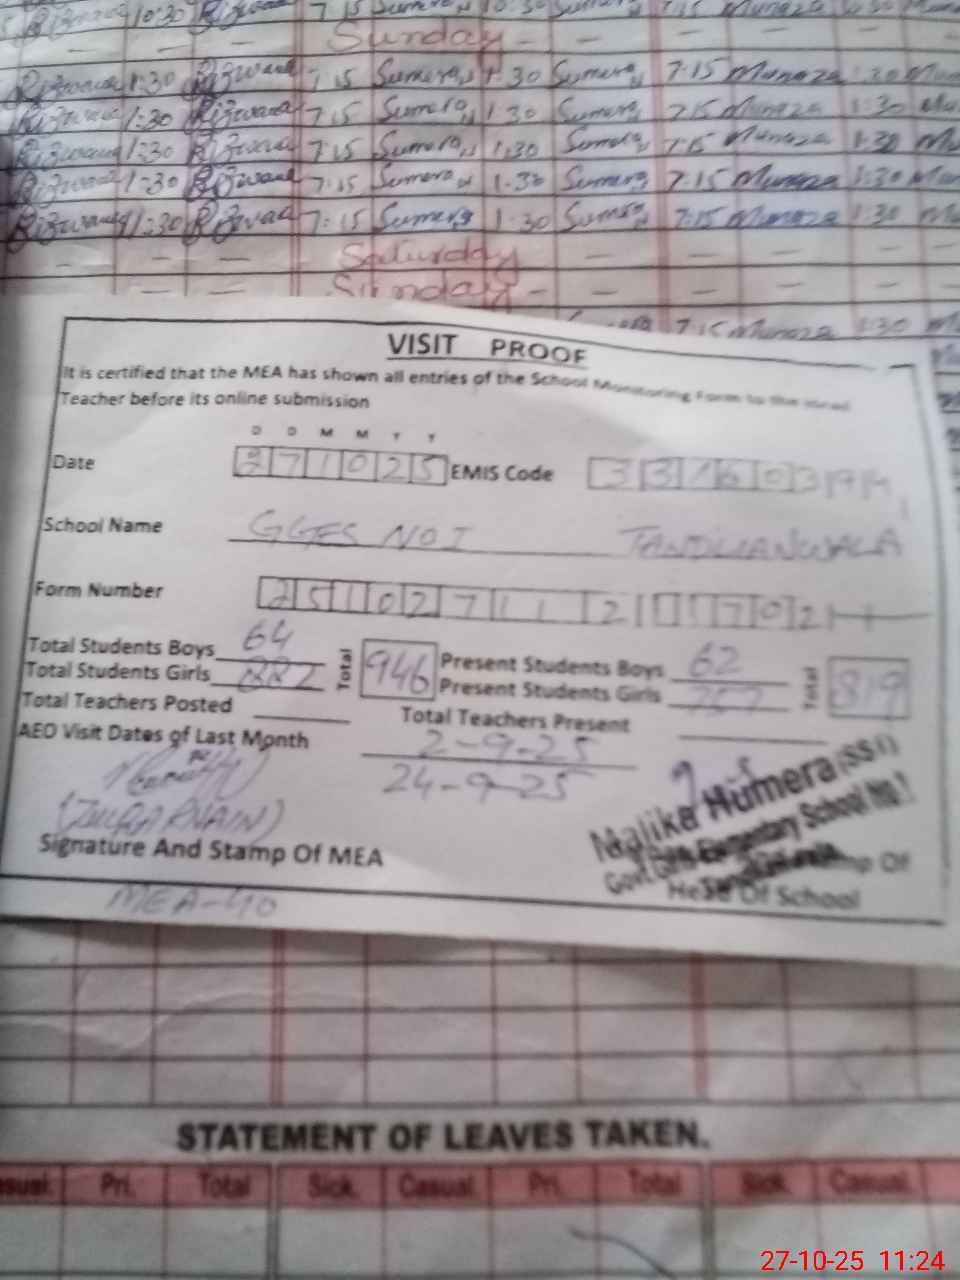 Rizwana 10:30 Rizwana 7:15 Sumera 10:30 Sumera 7:15 Munaza
— — — Sunday — — — — —
Rizwana 1:30 Rizwana 7:15 Sumera 1:30 Sumera 7:15 Munaza 1:30
Rizwana 1:30 Rizwana 7:15 Sumera 1:30 Sumera 7:15 Munaza 1:30
Rizwana 1:30 Rizwana 7:15 Sumera 1:30 Sumera 7:15 Munaza 1:30
Rizwana 1:30 Rizwana 7:15 Sumera 1:30 Sumera 7:15 Munaza 1:30
Rizwana 1:30 Rizwana 7:15 Sumera 1:30 Sumera 7:15 Munaza 1:30
— — — Saturday — — — —
— — — Sunday — — — — —
7:15 Munaza 1:30
VISIT PROOF
It is certified that the MEA has shown all entries of the School Monitoring Form to the Head
Teacher before its online submission
D D M M Y Y
Date 271025 EMIS Code
School Name GGES NO I TANDLIANWALA
Form Number
Total Students Boys 64 Total 946 Present Students Boys 62 Total 819
Total Students Girls 882 Present Students Girls 757
Total Teachers Posted Total Teachers Present
AEO Visit Dates of Last Month 2-9-25
24-9-25
(ZULQARNAIN)
Malika Humera (SST)
Govt. Girls Elementary School No.1
Signature And Stamp Of MEA
Head Of School
MEA-40
STATEMENT OF LEAVES TAKEN.
Pri. Total Sick. Casual. Pri. Total Sick. Casual.
27-10-25 11:24